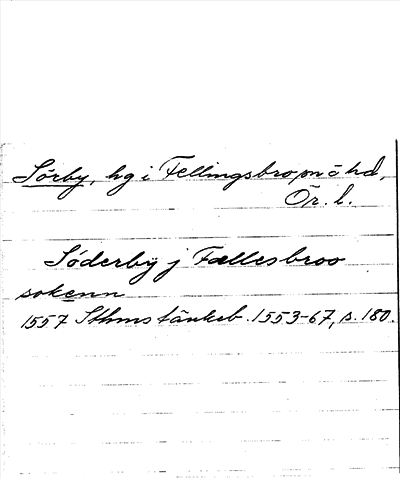 Sörby, hg i Fellingsbro sn o hd,
Ör. l.
Söderby j Fællesbroo
sokenn
1557 Sthms tänkeb. 1553-67, s. 180.